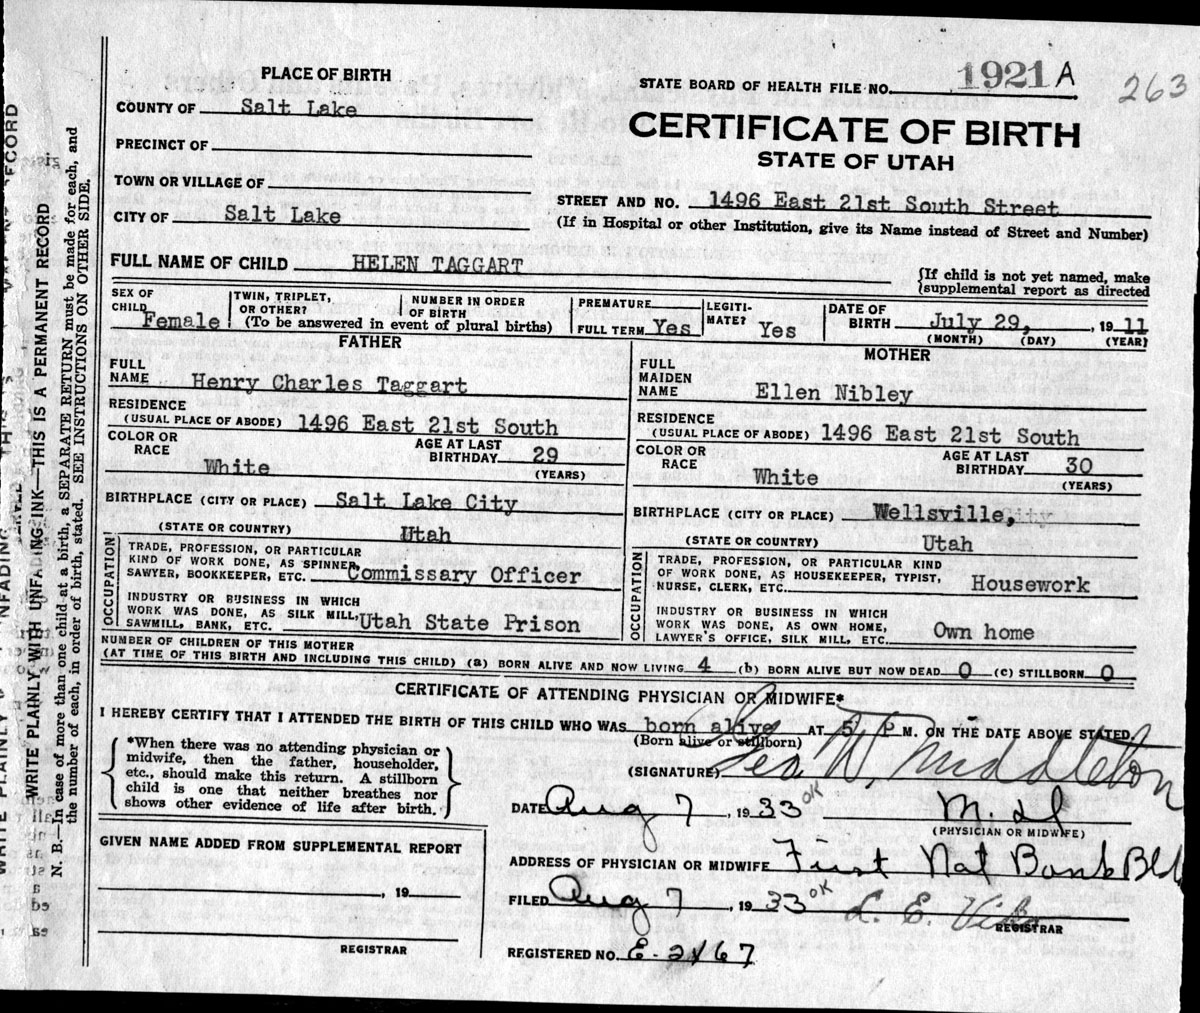 PLACE OF BIRTH
COUNTY OF Salt Lake
PRECINCT OF
TOWN OR VILLAGE OF
CITY OF Salt Lake
STATE BOARD OF HEALTH FILE NO. 1921 A
263
CERTIFICATE OF BIRTH
STATE OF UTAH
STREET AND NO. 1496 East 21st South Street
(If in Hospital or other Institution, give its Name instead of Street and Number)
FULL NAME OF CHILD HELEN TAGGART
{If child is not yet named, make
supplemental report as directed
SEX OF CHILD Female
TWIN, TRIPLET, OR OTHER?
NUMBER IN ORDER OF BIRTH
(To be answered in event of plural births)
PREMATURE
FULL TERM Yes
LEGITI-
MATE? Yes
DATE OF
BIRTH July 29, , 1911
(MONTH) (DAY) (YEAR)
FATHER
FULL
NAME Henry Charles Taggart
RESIDENCE
(USUAL PLACE OF ABODE) 1496 East 21st South
COLOR OR
RACE White
AGE AT LAST
BIRTHDAY 29
(YEARS)
BIRTHPLACE (CITY OR PLACE) Salt Lake City
(STATE OR COUNTRY) Utah
OCCUPATION
TRADE, PROFESSION, OR PARTICULAR
KIND OF WORK DONE, AS SPINNER,
SAWYER, BOOKKEEPER, ETC. Commissary Officer
INDUSTRY OR BUSINESS IN WHICH
WORK WAS DONE, AS SILK MILL,
SAWMILL, BANK, ETC. Utah State Prison
MOTHER
FULL
MAIDEN
NAME Ellen Nibley
RESIDENCE
(USUAL PLACE OF ABODE) 1496 East 21st South
COLOR OR
RACE White
AGE AT LAST
BIRTHDAY 30
(YEARS)
BIRTHPLACE (CITY OR PLACE) Wellsville,
(STATE OR COUNTRY) Utah
OCCUPATION
TRADE, PROFESSION, OR PARTICULAR KIND
OF WORK DONE, AS HOUSEKEEPER, TYPIST,
NURSE, CLERK, ETC. Housework
INDUSTRY OR BUSINESS IN WHICH
WORK WAS DONE, AS OWN HOME,
LAWYER'S OFFICE, SILK MILL, ETC. Own home
NUMBER OF CHILDREN OF THIS MOTHER
(AT TIME OF THIS BIRTH AND INCLUDING THIS CHILD) (a) BORN ALIVE AND NOW LIVING 4 (b) BORN ALIVE BUT NOW DEAD 0 (c) STILLBORN 0
CERTIFICATE OF ATTENDING PHYSICIAN OR MIDWIFE*
I HEREBY CERTIFY THAT I ATTENDED THE BIRTH OF THIS CHILD WHO WAS born alive AT 5 P M. ON THE DATE ABOVE STATED.
(Born alive or stillborn)
*When there was no attending physician or
midwife, then the father, householder,
etc., should make this return. A stillborn
child is one that neither breathes nor
shows other evidence of life after birth.
(SIGNATURE) Geo W. Middleton
DATE Aug 7, 1933 OK M.d
(PHYSICIAN OR MIDWIFE)
ADDRESS OF PHYSICIAN OR MIDWIFE First Nat Bank Bld
FILED Aug 7, 1933 OK L. E. Viko
REGISTRAR
REGISTERED NO. E-2167
GIVEN NAME ADDED FROM SUPPLEMENTAL REPORT
, 19
REGISTRAR
WRITE PLAINLY WITH UNFADING INK—THIS IS A PERMANENT RECORD
N. B.—In case of more than one child at a birth, a SEPARATE RETURN must be made for each, and
the number of each, in order of birth, stated. SEE INSTRUCTIONS ON OTHER SIDE.